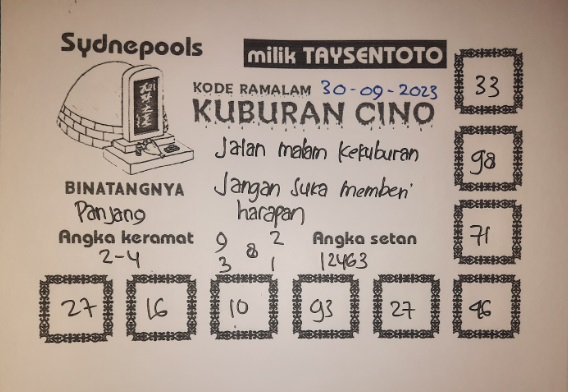 Sydnepools
milik TAYSENTOTO
KODE RAMALAM 30-09-2023
KUBURAN CINO
33
Jalan malam kekuburan
98
BINATANGNYA
Jangan suka memberi
Panjang
harapan
71
Angka keramat
9 2
8
3 1
Angka setan
2-4
12463
27 16 10 93 27 46